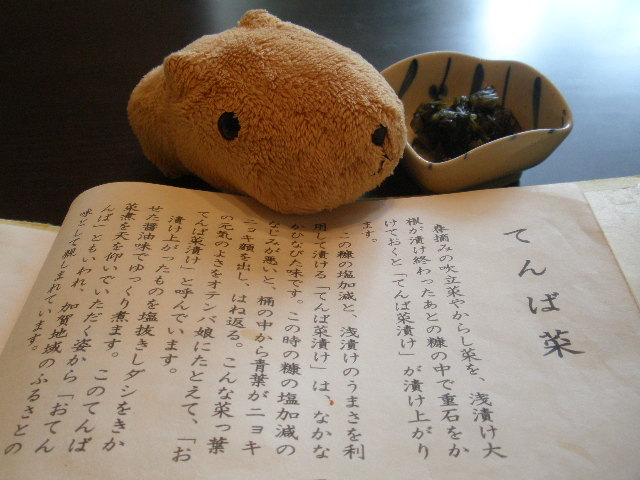 てんば菜
春摘みの吹立菜やからし菜を、浅漬け大
根が漬け終わったあとの糠の中で重石をか
けておくと「てんば菜漬け」が漬け上がり
ます。
この糠の塩加減と、浅漬けのうまさを利
用して漬ける「てんば菜漬け」は、なかな
かひなびた味です。この時の糠の塩加減の
なじみが悪いと、桶の中から青葉がニョキ
ニョキ顔を出し、はね返る。こんな菜っ葉
の元気のよさをオテンバ娘にたとえて、「お
てんば菜漬け」と呼んでいます。
漬け上がったものを塩抜きしダシをきか
せた醤油味でゆっくり煮ます。このてんば
菜煮を天を仰いでいただく姿から「おてん
んば」ともいわれ、加賀地域のふるさとの
味として親しまれています。